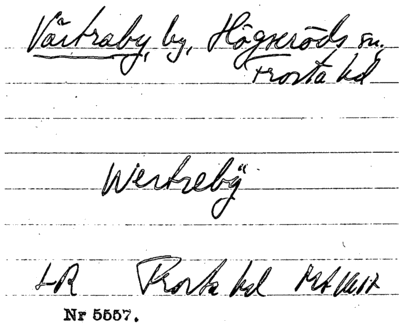 Västraby, by, Högseröds sn,
Frosta hd
Westrebÿ
LR Frosta hd
Nr 5557.